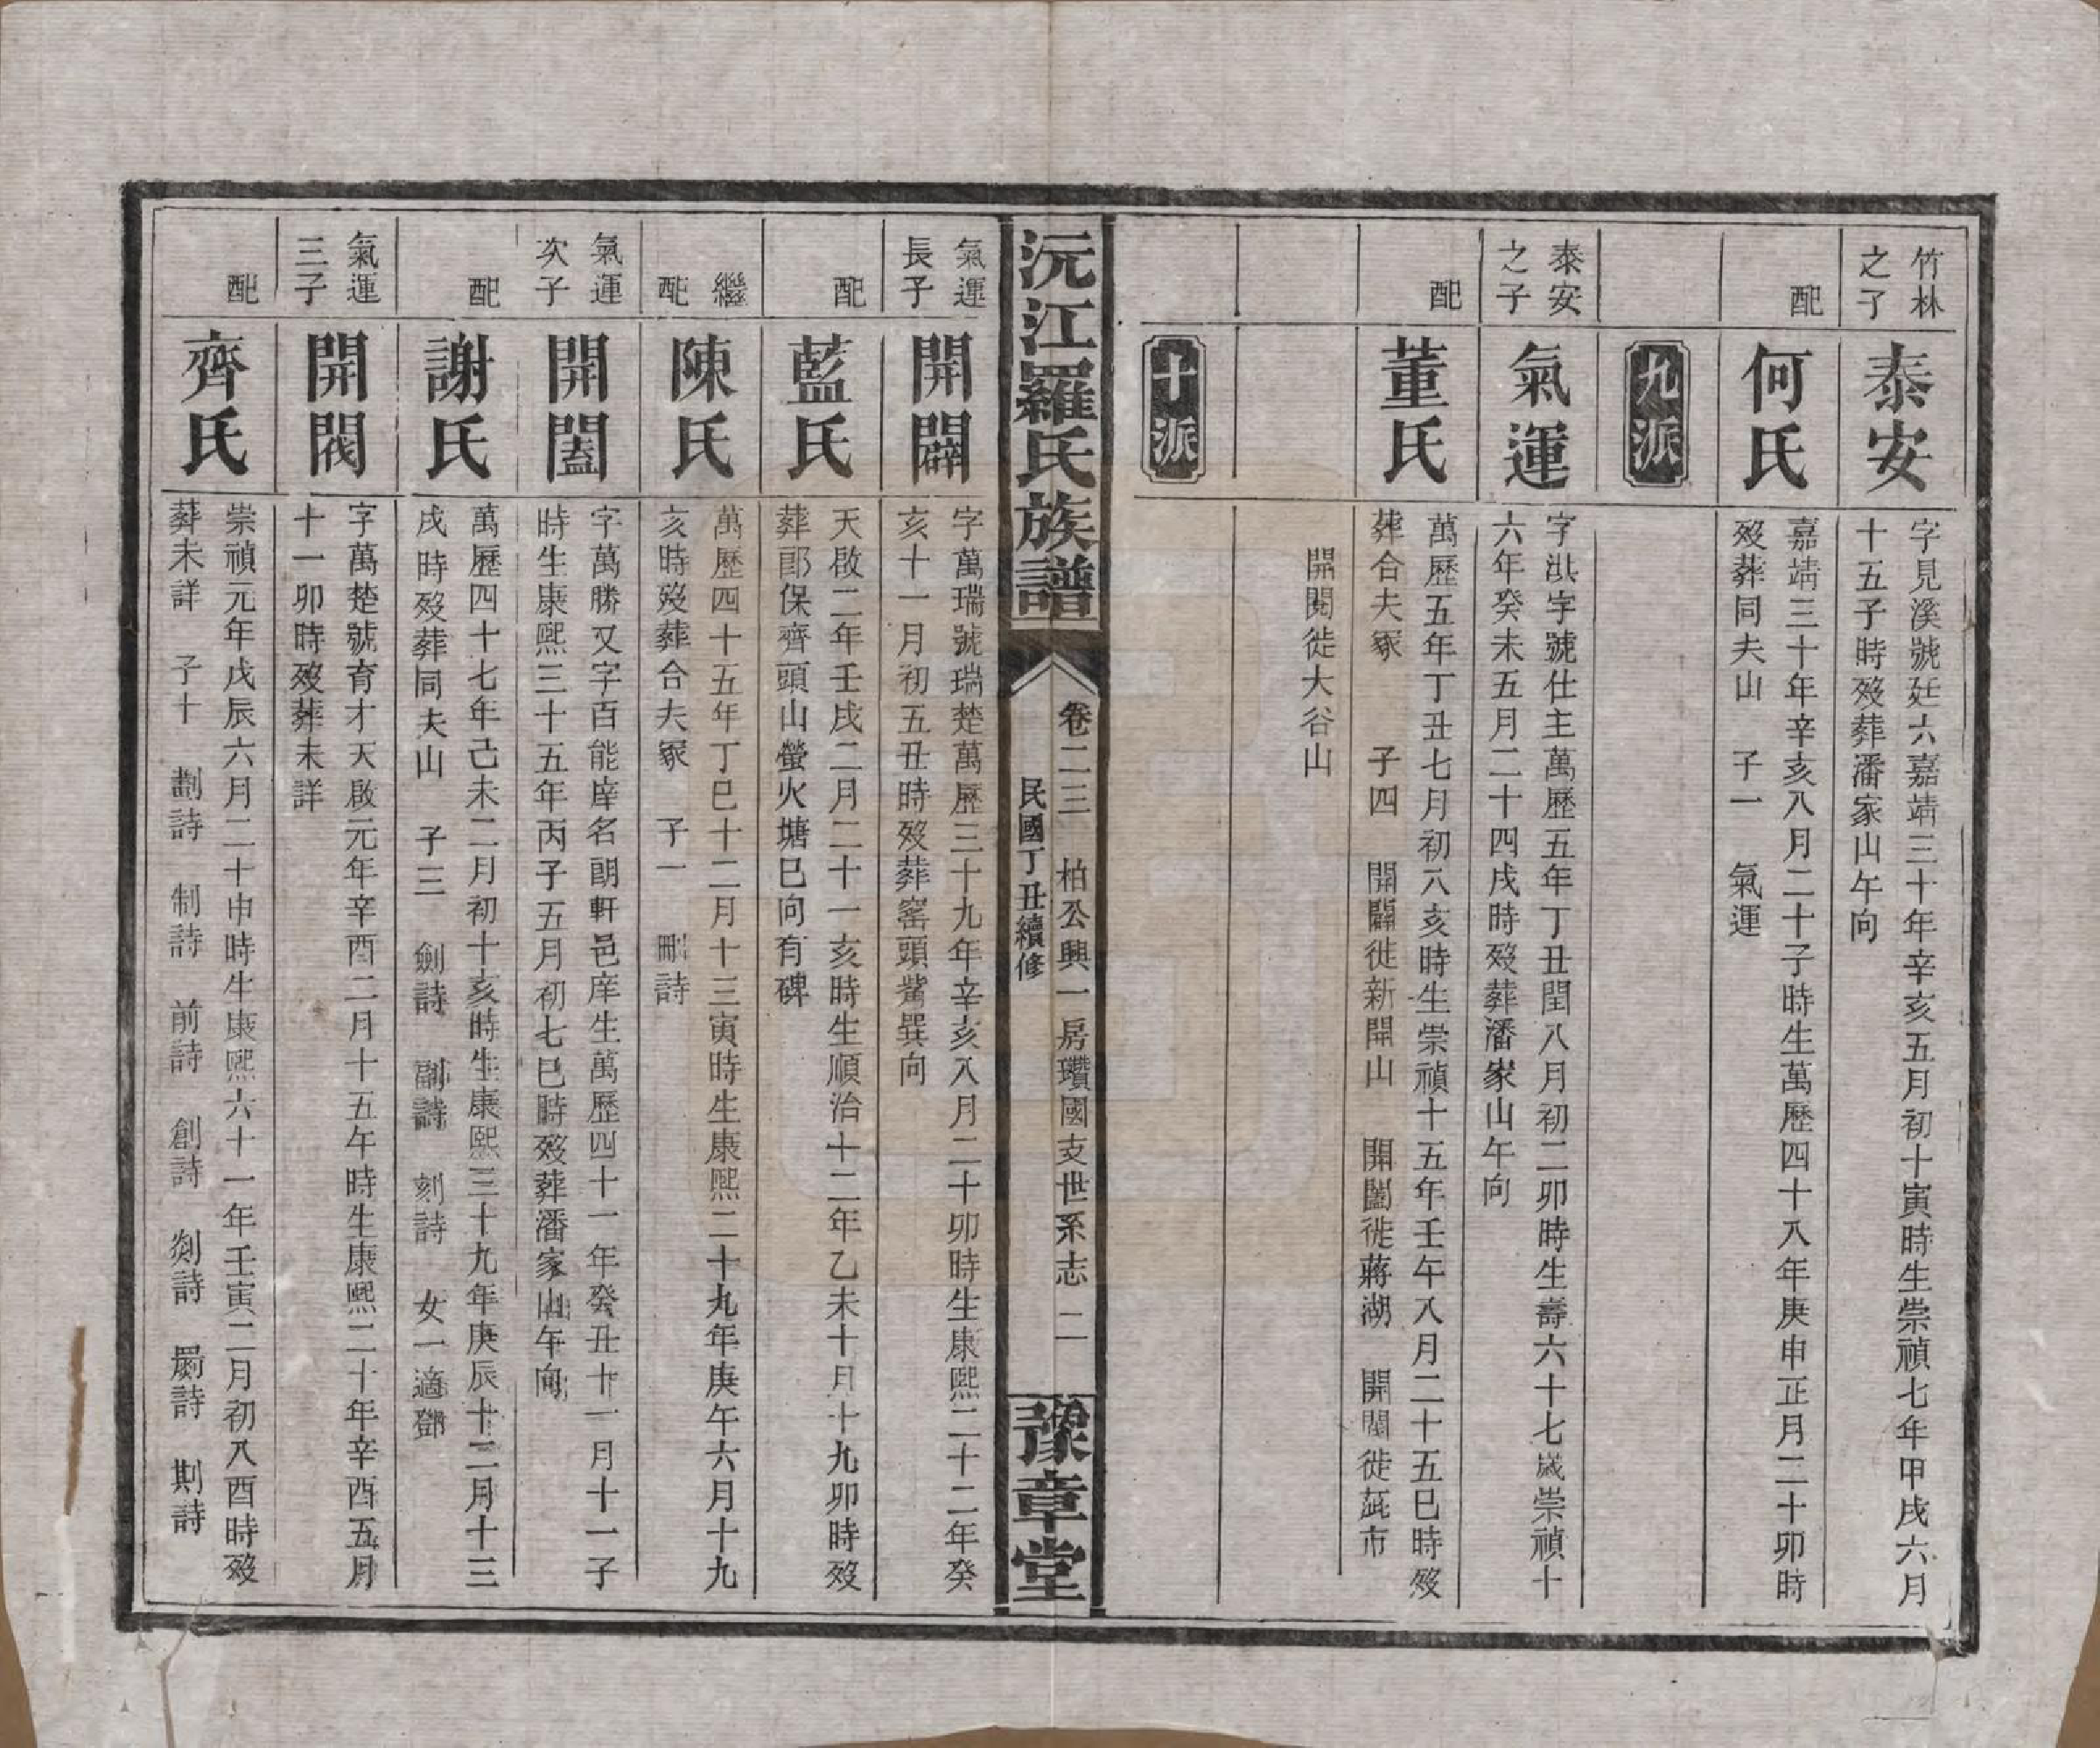 竹林
之子
泰安
字見溪號廷六嘉靖三十年辛亥五月初十寅時生崇禎七年甲戌六月
十五子時歿葬潘家山午向
配
何氏
嘉靖三十年辛亥八月二十子時生萬歷四十八年庚申正月二十卯時
歿葬同夫山　子一　氣運
九派
泰安
之子
氣運
字洪字號仕主萬歷五年丁丑閏八月初二卯時生壽六十七歲崇禎十
六年癸未五月二十四戌時歿葬潘家山午向
配
董氏
萬歷五年丁丑七月初八亥時生崇禎十五年壬午八月二十五巳時歿
葬合夫冢　子四　開闢徙新開山　開闔徙蔣湖　開閣徙茈市
開閱徙大谷山
十派
沅江羅氏族譜
卷二三　柏公興一房瓚國支世系志　二
民國丁丑續修
豫章堂
氣運
長子
開闢
字萬瑞號瑞楚萬歷三十九年辛亥八月二十卯時生康熙二十二年癸
亥十一月初五丑時歿葬窰頭嘴巽向
配
藍氏
天啟二年壬戌二月二十一亥時生順治十二年乙未十月十九卯時歿
葬郎保齊頭山螢火塘巳向有碑
繼
配
陳氏
萬歷四十五年丁巳十二月十三寅時生康熙二十九年庚午六月十九
亥時歿葬合夫冢　子一　刪詩
氣運
次子
開闔
字萬勝又字百能庠名朗軒邑庠生萬歷四十一年癸丑十一月十一子
時生康熙三十五年丙子五月初七巳時歿葬潘家山午向
配
謝氏
萬歷四十七年己未二月初十亥時生康熙三十九年庚辰十二月十三
戌時歿葬同夫山　子三　劍詩　副詩　刻詩　女一適鄧
氣運
三子
開閣
字萬楚號育才天啟元年辛酉二月十五午時生康熙二十年辛酉五月
十一卯時歿葬未詳
配
齊氏
崇禎元年戊辰六月二十申時生康熙六十一年壬寅二月初八酉時歿
葬未詳　子十　劃詩　制詩　前詩　創詩　剡詩　罽詩　則詩